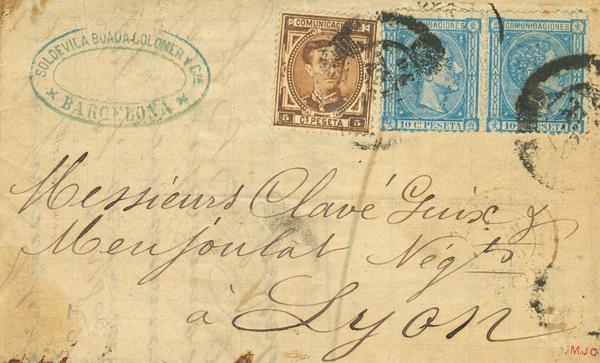 SOLDEVILA BUADA COLOMER Y Cia
* BARCELONA *
COMUNICACIONES
5 CS PESETA 5
COMUNICACIONES
10 C. PESETA
COMUNICACIONES
10 C. PESETA
Messieurs Clavé Guix &
Menjoulat Négts
à Lyon
MJC